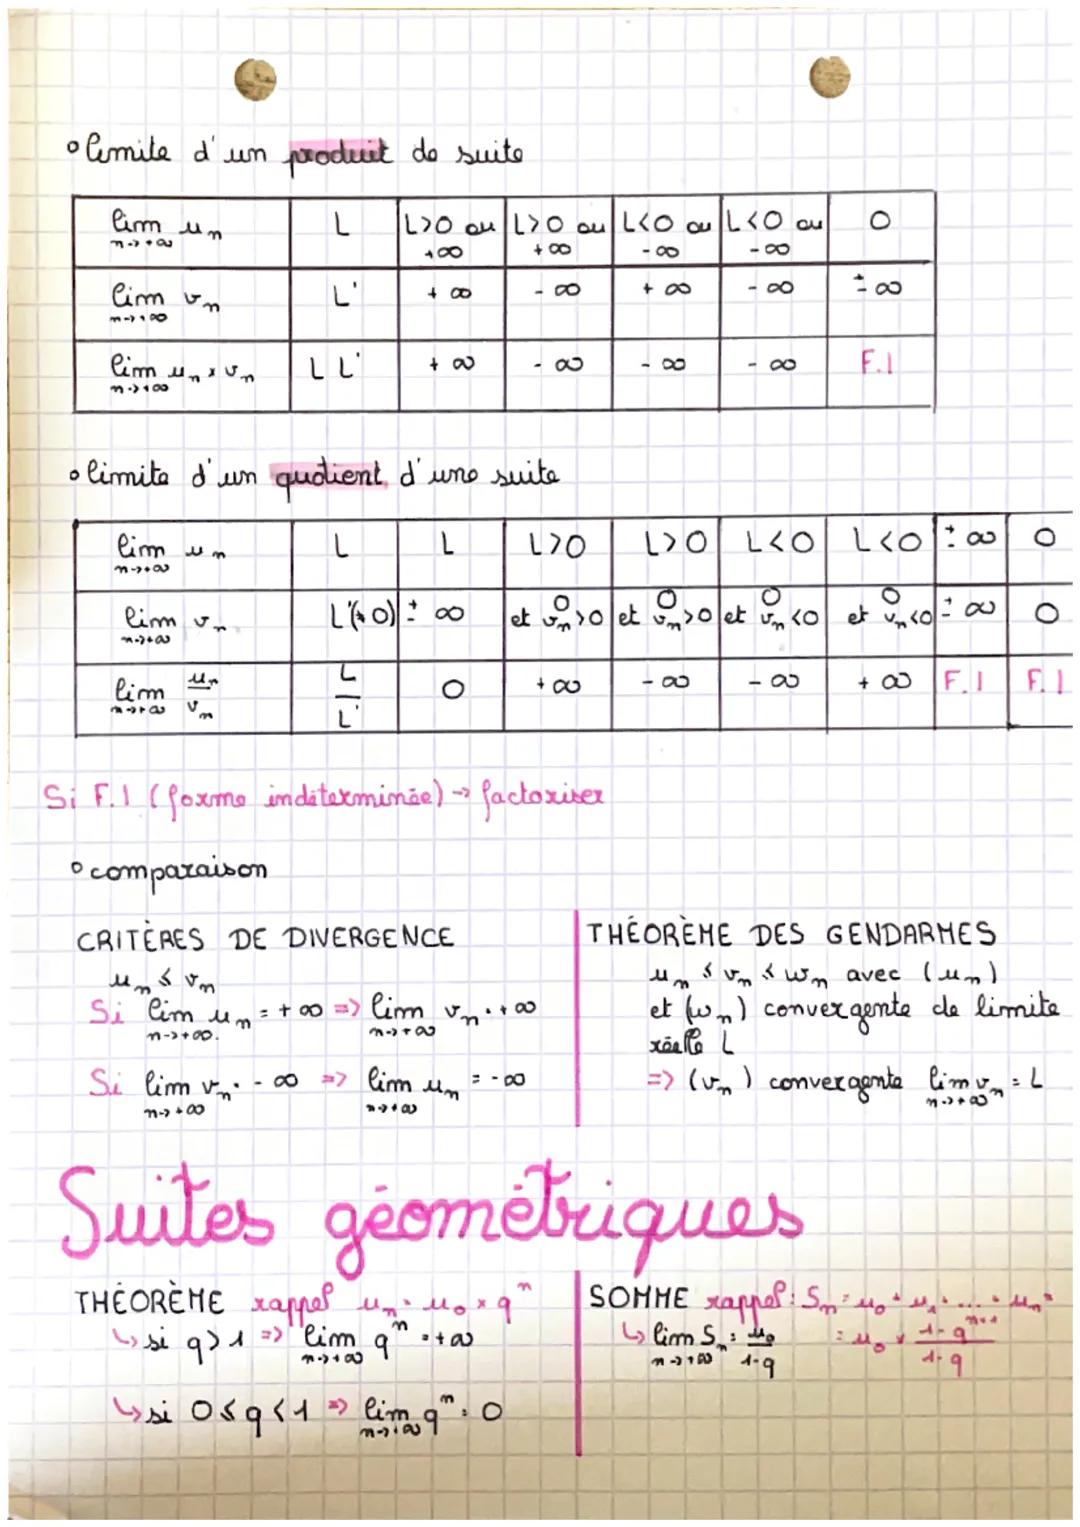 ° limite d'un produit de suite
lim uₙ n→+∞ | L | L>0 ou +∞ | L>0 ou +∞ | L<0 ou -∞ | L<0 ou -∞ | 0
lim vₙ n→+∞ | L' | +∞ | -∞ | +∞ | -∞ | ±∞
lim uₙ × vₙ n→+∞ | L L' | +∞ | -∞ | -∞ | -∞ | F.I
° limite d'un quotient d'une suite
lim uₙ n→+∞ | L | L | L>0 | L>0 | L<0 | L<0 | ±∞ | 0
lim vₙ n→+∞ | L'(≠0) | ±∞ | 0 et vₙ>0 | 0 et vₙ>0 | 0 et vₙ<0 | 0 et vₙ<0 | ±∞ | 0
lim uₙ/vₙ n→+∞ | L/L' | 0 | +∞ | -∞ | -∞ | +∞ | F.I | F.I
Si F.I (forme indéterminée) → factoriser
° comparaison
CRITÈRES DE DIVERGENCE
uₙ ≤ vₙ
Si lim uₙ = +∞ => lim vₙ = +∞
n→+∞ n→+∞
Si lim vₙ = -∞ => lim uₙ = -∞
n→+∞ n→+∞
THÉORÈME DES GENDARMES
uₙ ≤ vₙ ≤ wₙ avec (uₙ)
et (wₙ) convergente de limite
réelle L
=> (vₙ) convergente lim vₙ = L
n→+∞
Suites géométriques
THÉORÈME rappel uₙ = u₀ × qⁿ
↳ si q > 1 => lim qⁿ = +∞
n→+∞
↳ si 0 ≤ q < 1 => lim qⁿ = 0
n→+∞
SOMME rappel : Sₙ = u₀ + u₁ + ... + uₙ =
↳ lim Sₙ = u₀/1-q = u₀ × 1-qⁿ⁺¹/1-q
n→+∞